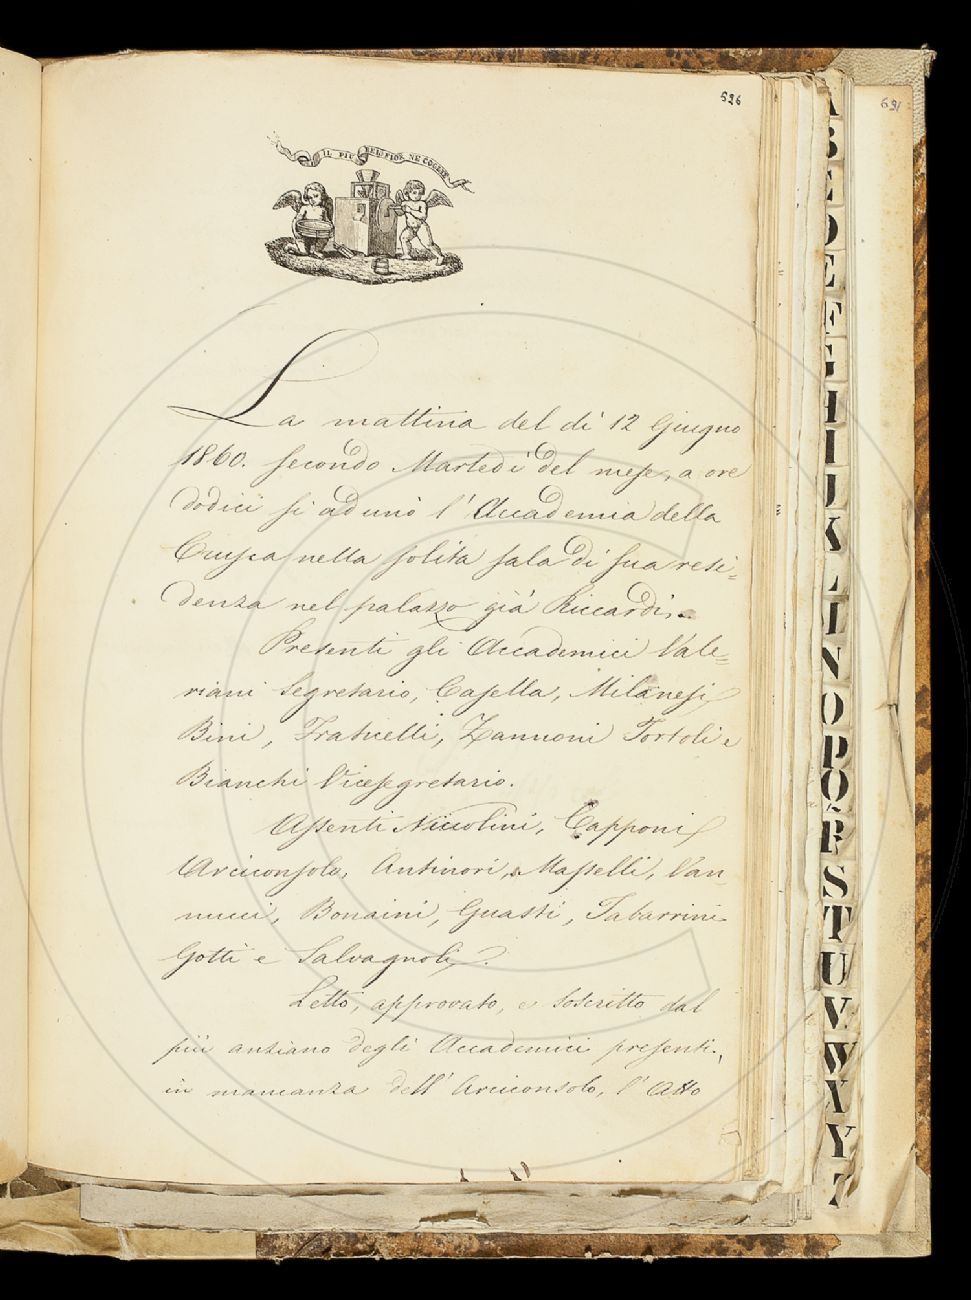 526
691
IL PIÙ BEL FIOR NE COGLIE
La mattina del dì 12 Giugno
1860. secondo Martedì del mese, a ore
dodici si adunò l'Accademia della
Crusca nella solita sala di sua resi=
denza nel palazzo già Riccardi.
Presenti gli Accademici Vale=
riani Segretario, Casella, Milanesi
Bini, Fraticelli, Zannoni Tortoli e
Bianchi Vicesegretario.
Assenti Niccolini, Capponi
Arciconsolo, Antinori, Masselli, Van-
nucci, Bonaini, Guasti, Tabarrini
Gotti e Salvagnoli.
Letto, approvato, e soscritto dal
più anziano degli Accademici presenti,
in mancanza dell'Arciconsolo, l'Atto
A
B
C
D
E
F
G
H
I
J
K
L
I
N
O
P
Q
R
S
T
U
V
W
X
Y
Z